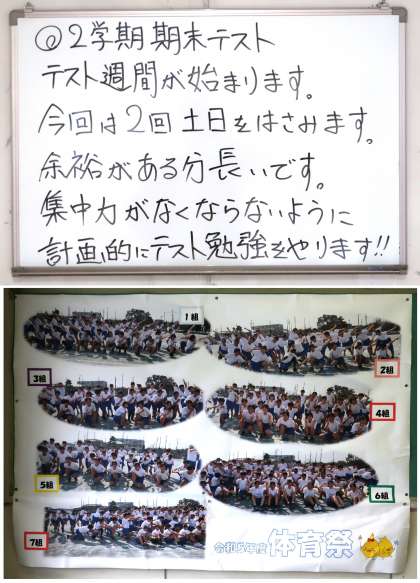 ◎2学期期末テスト
テスト週間が始まります。
今回は2回土日をはさみます。
余裕がある分長いです。
集中力がなくならないように
計画的にテスト勉強をやります!!
1組
2組
3組
4組
5組
6組
7組
令和5年度 体育祭